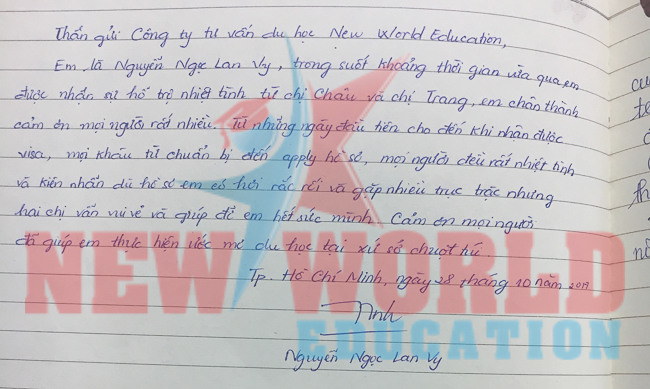 Thân gửi Công ty tư vấn du học New World Education,
Em là Nguyễn Ngọc Lan Vy, trong suốt khoảng thời gian vừa qua em
được nhận sự hỗ trợ nhiệt tình từ chị Châu và chị Trang, em chân thành
cảm ơn mọi người rất nhiều. Từ những ngày đầu tiên cho đến khi nhận được
visa, mọi khâu từ chuẩn bị đến apply hồ sơ, mọi người đều rất nhiệt tình
và kiên nhẫn dù hồ sơ em có hơi rắc rối và gặp nhiều trục trặc nhưng
hai chị vẫn vui vẻ và giúp đỡ em hết sức mình. Cảm ơn mọi người
đã giúp em thực hiện ước mơ du học tại xứ sở chuột túi.
Tp. Hồ Chí Minh, ngày 28 tháng 10 năm 2019
NEW WORLD
EDUCATION
Nguyễn Ngọc Lan Vy